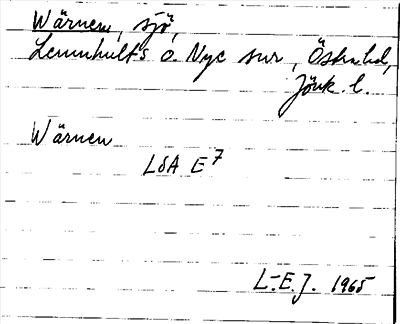 Wärnen, sjö,
Lemnhults o. Nye snr, Östra hd,
Jönk. l.
Wärnen
LSA E7
L-E.J. 1965